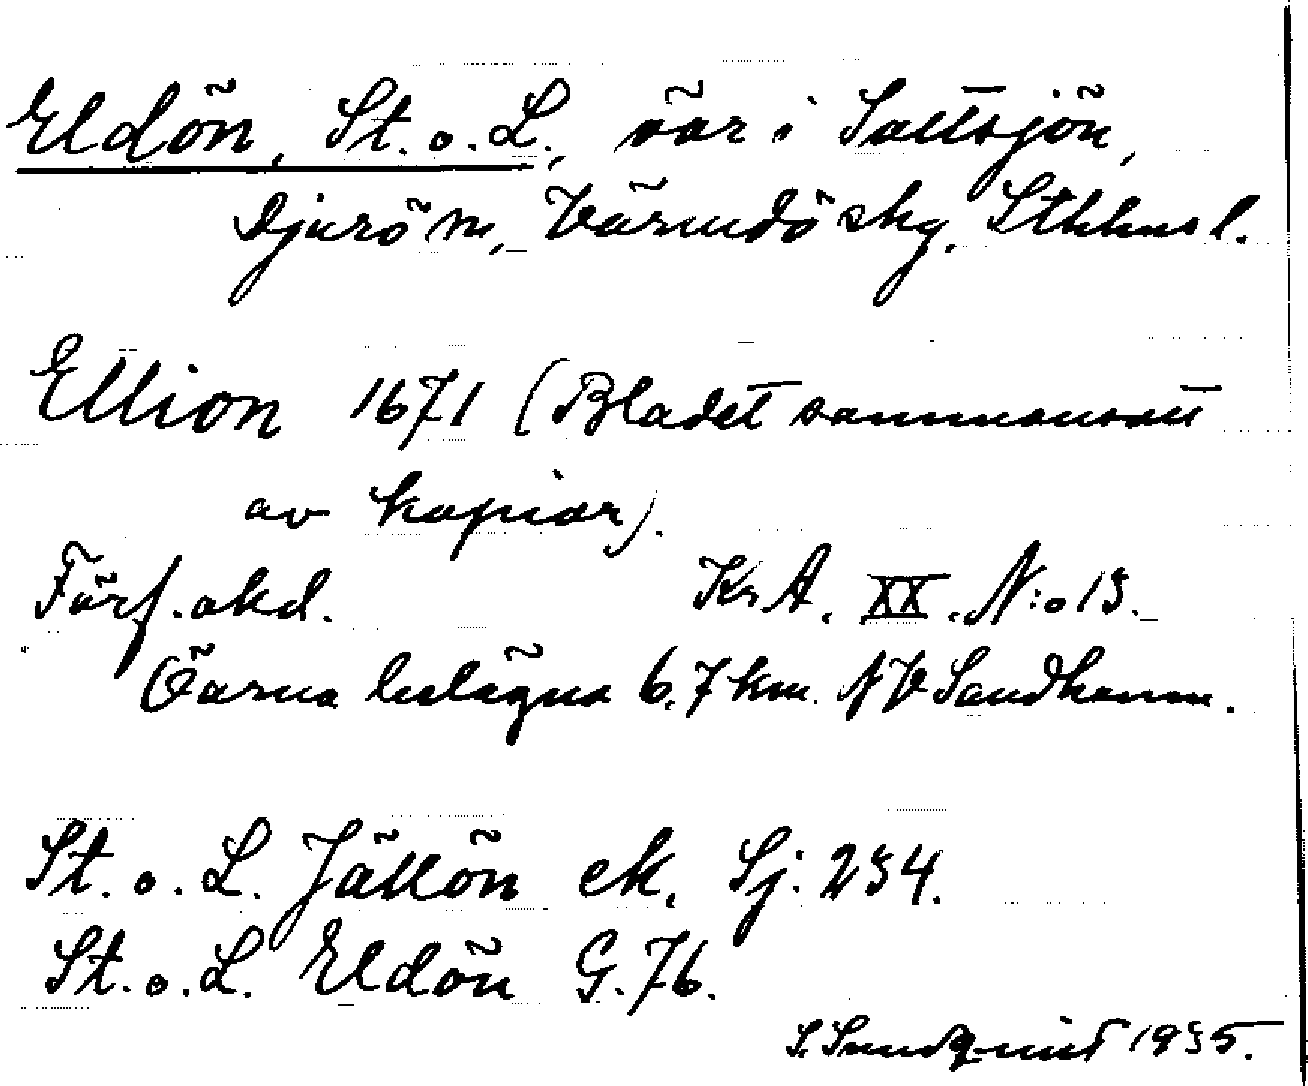 Eldön, St. o. L., öar i Saltsjön,
Djurö sn, Värmdö skg, Sthlms l.
Ellion 1671 (Bladet sammansatt
av kopior).
Förf. okd. Kr.A. XX. N:o 13.
Öarna belägna 6,7 km. NV Sandhamn.
St. o. L. Jällön ek. Sj. 234.
St. o. L. Eldön G. 76.
S. Sundquist 1935.